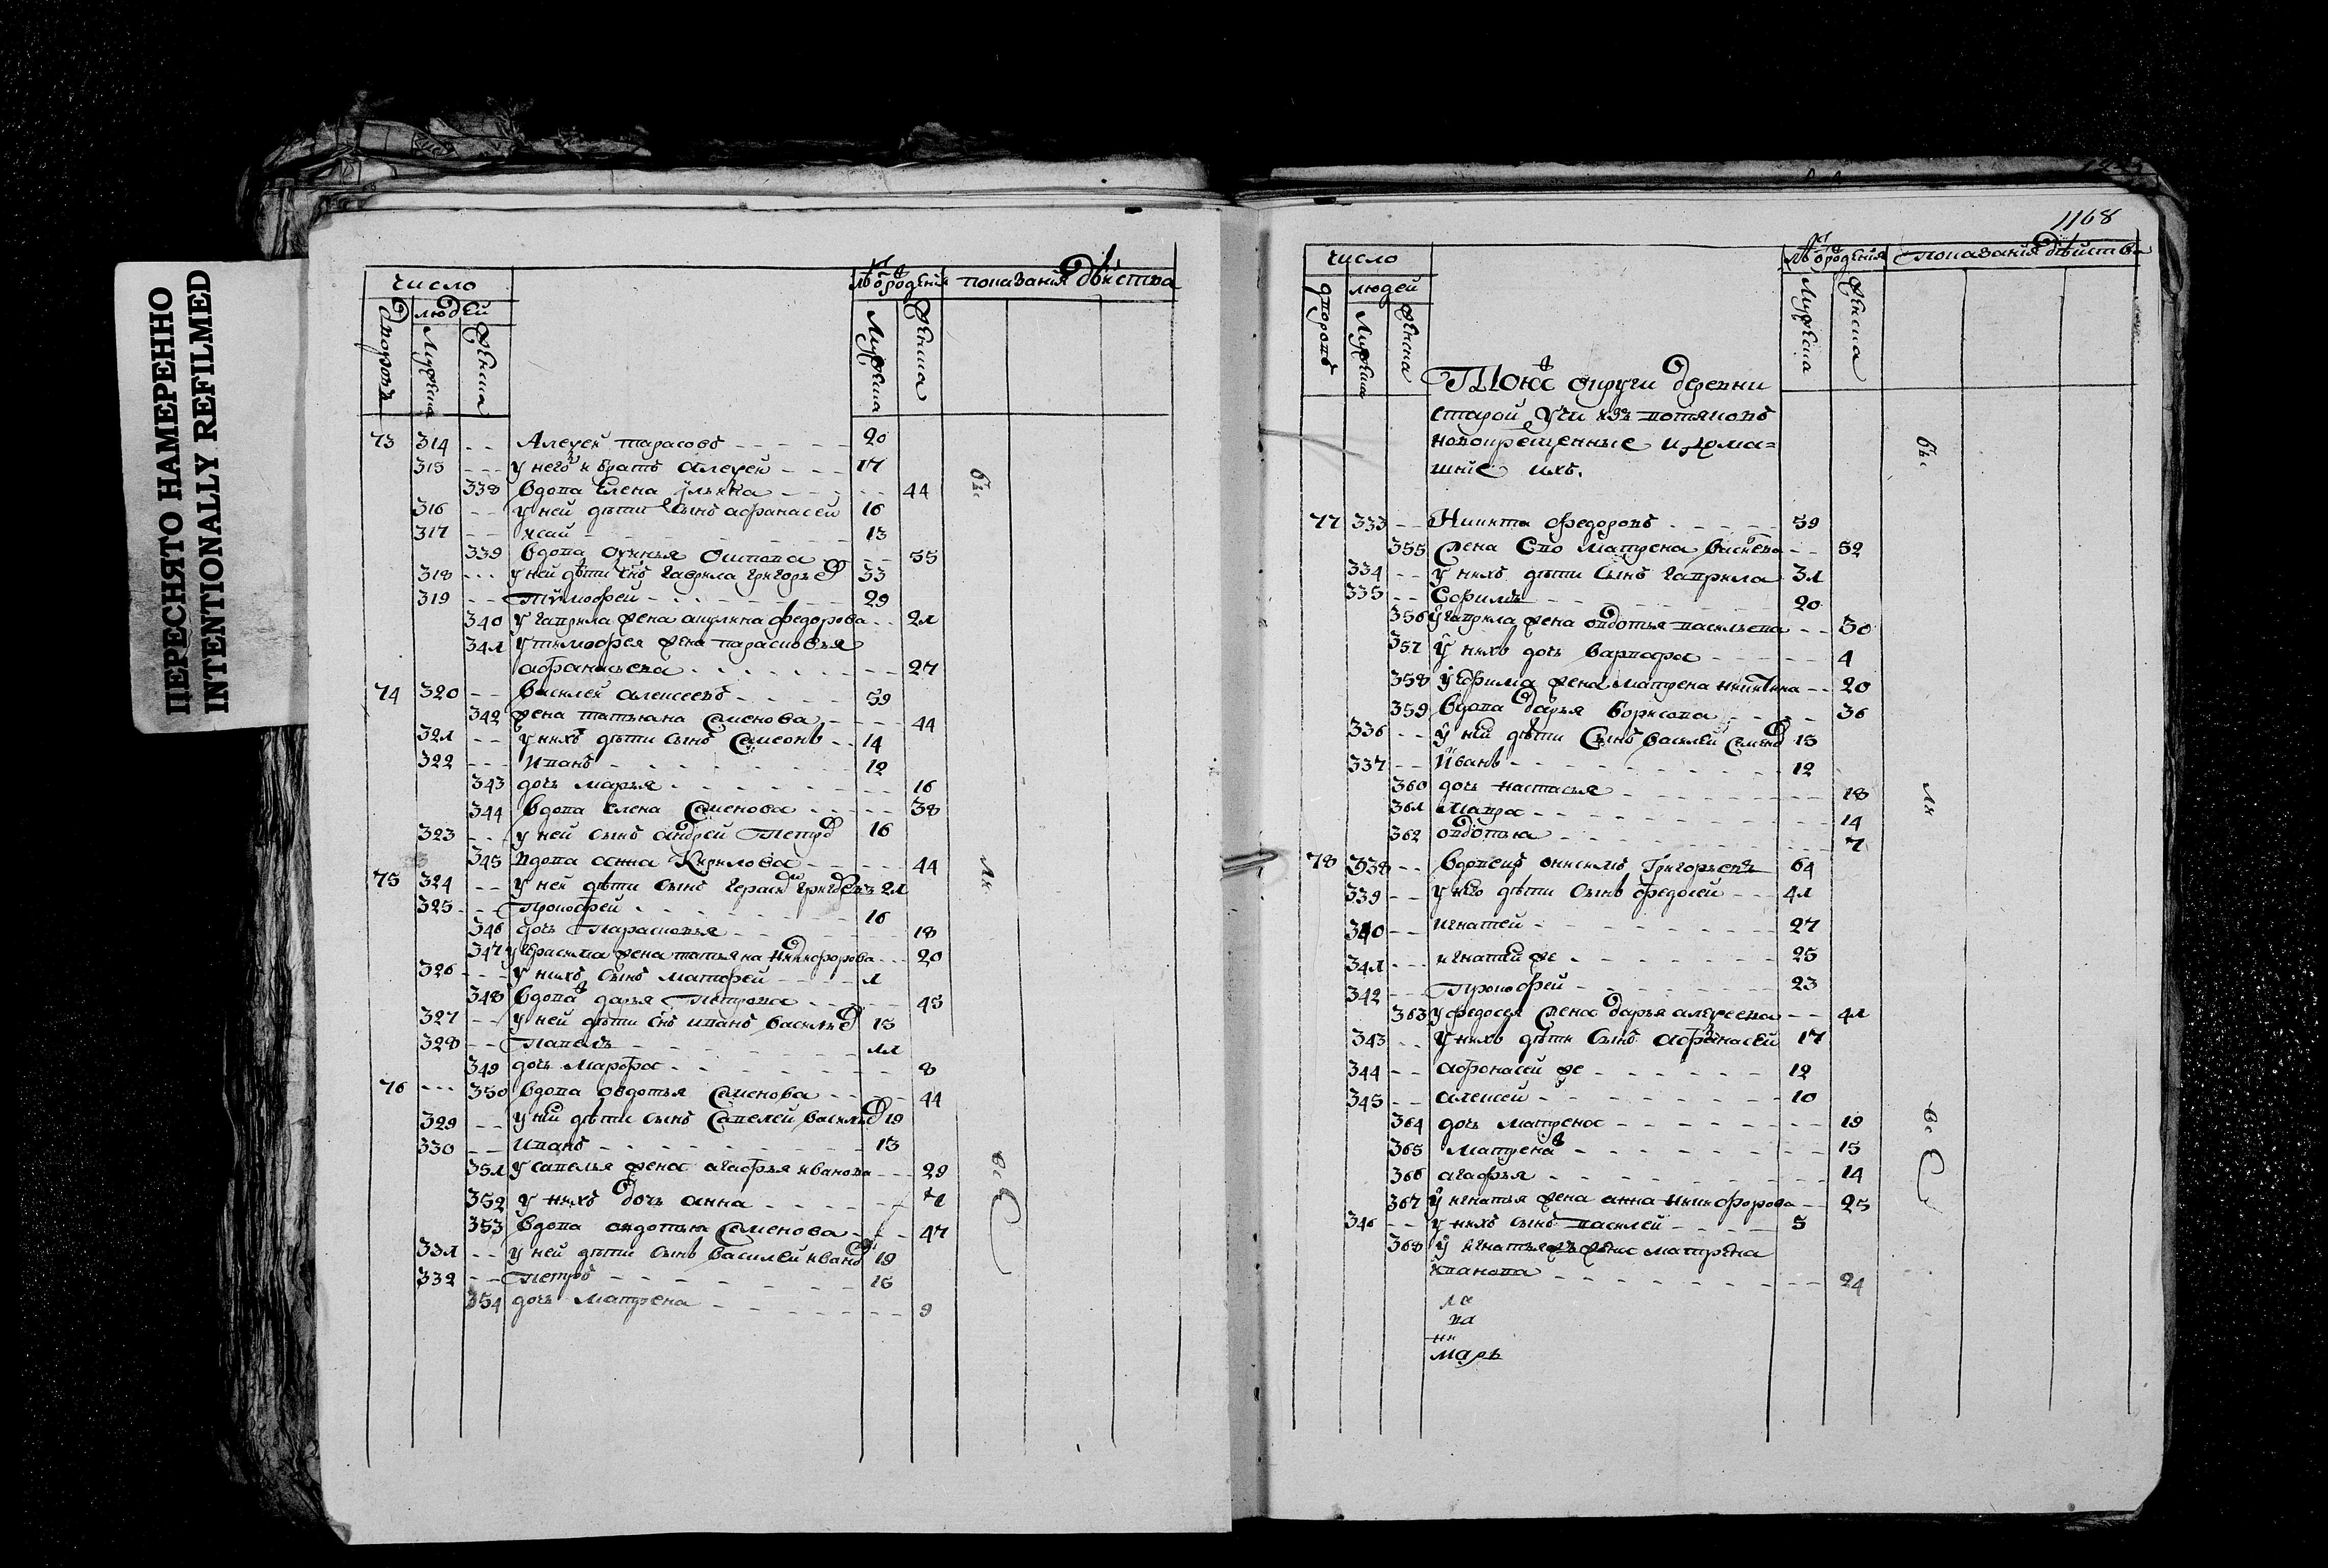 ПЕРЕСНЯТО НАМЕРЕННО
INTENTIONALLY REFILMED
число
людей
дворовъ
мужеска
женска
лѣ отрожденiя
мужеска
женска
показанiя дѣйства
73 314 Алеѯей тарасовъ 20
315 у него братъ алеѯей 17
338 вдова Елена ильина 44
316 у ней дѣти сынъ афанасей 16
317 исай 13
339 вдова Осипова 55
318 у ней дѣти снъ гаврила григорьев 33
319 Тимофей 29
340 у гаврила жена акулина федорова 21
341 у тимофея жена парасковья
афанасьева 27
74 320 Василей алексеевъ 59
342 жена татьяна Семенова 44
321 у нихъ дѣти сынъ Самсонъ 14
322 иванъ 12
343 дочь марья 16
344 вдова елена Семенова 38
323 у ней сынъ андрей Петров 16
345 вдова анна Кирилова 44
75 324 у ней дѣти сынъ герасим 21
325 Прокофей 16
346 дочь Парасковья 18
347 у герасима жена татьяна никифорова 20
326 у нихъ сынъ матфей 1
348 вдова дарья Петрова 45
327 у ней дѣти снъ иванъ васильев 15
328 Павелъ 11
349 дочь Марфа 8
76 350 вдова овдотья Семенова 44
329 у ней дѣти сынъ Савелей васильев 19
330 иванъ 13
351 у савелья жена агафья иванова 29
352 у нихъ дочь анна
353 вдова овдотья Семенова 47
331 у ней дѣти сынъ василей иванов 19
332 Петръ 15
354 дочь матрена 9
бы
ли
все
1168
число
людей
дворовъ
мужеска
женска
лѣ отрожденiя
мужеска
женска
показанiя дѣйства
Тоюже округи деревни
старой учи изъ вотяковъ
новокрещенные и дома=
шние ихъ.
77 333 Никита федоровъ 59
355 жена Ево матрена 52
334 у нихъ дѣти сынъ гаврила 31
335 Ефимъ 20
356 у гаврила жена овдотья васильева 30
357 у нихъ дочь варвара 4
358 у ефима жена матрена никитина 20
359 вдова дарья борисова 36
336 у ней дѣти сынъ василей Семенов 15
337 иванъ 12
360 дочь настасья 18
361 мавра 14
362 овдотья 7
78 338 вдовецъ онисимъ Григорьевъ 64
339 у него дѣти сынъ федосей 41
340 игнатей 27
341 игнатей же 25
342 Прокофей 23
363 у федосея жена дарья алеѯеева 41
343 у нихъ дѣти сынъ афанасей 17
344 афонасей же 12
345 алексей 10
364 дочь матрена 19
365 матрена 15
366 агафья 14
367 у игнатья жена анна никифорова 25
346 у нихъ сынъ василей 5
368 у игнатья жена матрена
иванова 24
ла
ва
ни
марь
бы
ли
все